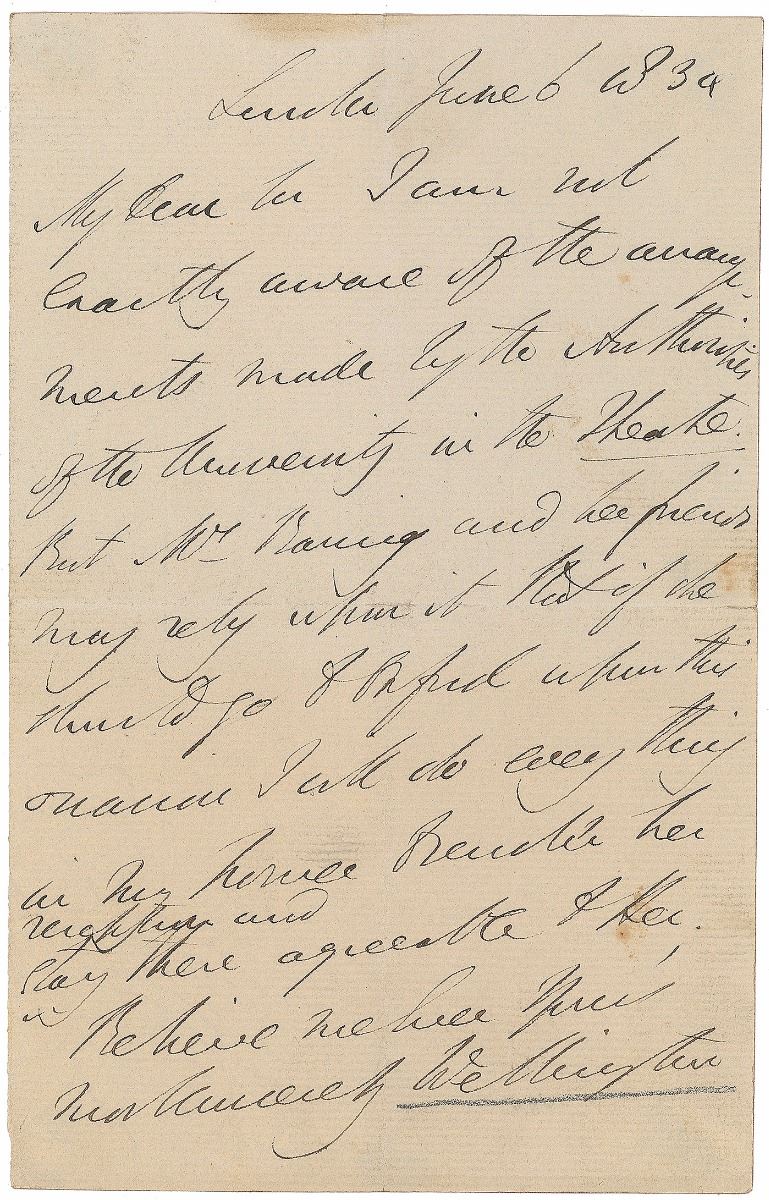 London June 6 1834
My Dear Sir I am not
exactly aware of the arrange-
ments made by the Authorities
of the University in the Theatre.
But Mrs Baring and her friends
may rely upon it that if she
should go to Oxford upon this
occasion I will do every thing
in my power to render her
and
stay there agreeable to Her.
Believe me Ever Yours
most sincerely Wellington